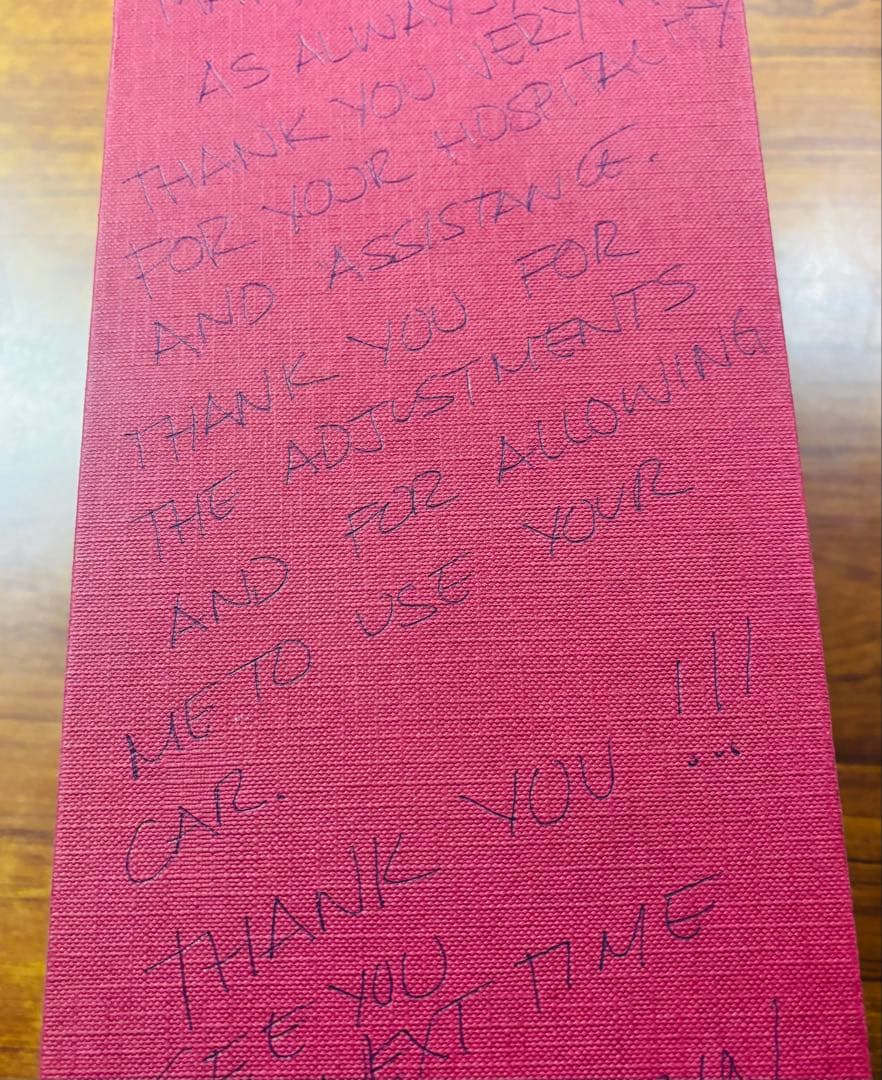 AS ALWAYS,
THANK YOU VERY
FOR YOUR HOSPITALITY
AND ASSISTANCE.
THANK YOU FOR
THE ADJUSTMENTS
AND FOR ALLOWING
ME TO USE YOUR
CAR.
THANK YOU!!!
SEE YOU
NEXT TIME